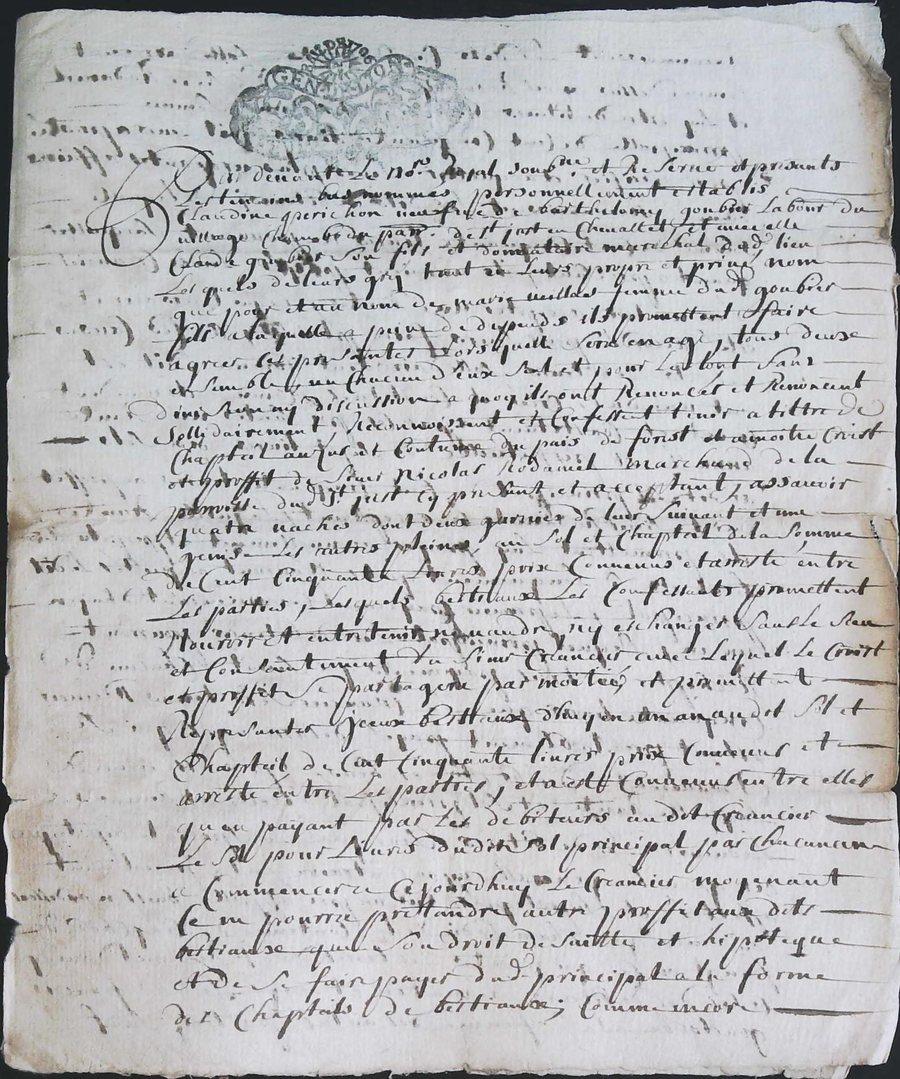 GEN
Par devant Le No.re Royal soub.ne, et Reservé et presents
Les tiemoins bas nommés personnellement establis
Claudine perichon veufve de barthelemy goubier Labour du
village parr. de St just en Chevallet, et avec elle
Claude goubier son fils et donnataire marechal dud. lieu
Lesquels de leurs gré, tant en leurs propre et privé nom
que pour et au nom de marie femme dud. goubier
fils a laquelle a peine de depends ils promettent faire
agreer les presentes Lors quelle sera en age, tous deux
ensemble, un chacun d'eux seul et pour Le tout sans
division ny discussion a quoy ils ont Renoncés et Renoncent
Sollidairement Reconnoissent et Confessent tenir a tiltre de
Chapteil au us et Coutume du pais de forest et a moitie Croist
et proffit de sieur Nicolas Rodamel marchand de la
parroisse dud. St just cy present et acceptant, assavoir
quatre vaches dont deux garnies de leur suivant et une
genis Les autres pleines, au Sol et Chapteil de la Somme
de Cent Cinquante Livres, prix Convenus et arresté entre
Les parties, Lesquels bestiaux Les Confessants promettent
Nourrir et entretenir, ny vandre, ny eschanger sans Le sceu
et Consentiment du sieur Creancier avec Lequel Le Croist
et proffit se partagera par moitié, et promettent
Represanter yceux bestiaux d'huy en un an audit Sol et
Chapteil de Cent Cinquante livres prix Convenus et
arresté entre Les parties, et a esté Convenus entre elles
qu en payant par Les debiteurs audit Creancier
Le Sol pour Livres dudit Sol principal par Chacun an
a Commencer a Cejourdhuy Le Creancier moyenant
Ce ne pourra prettandre autre proffit aux dits
bestiaux que son droit de suitte et hipoteque
et de se faire payer dud. principal a la forme
des Chapteils de bestiaux; Comme encore